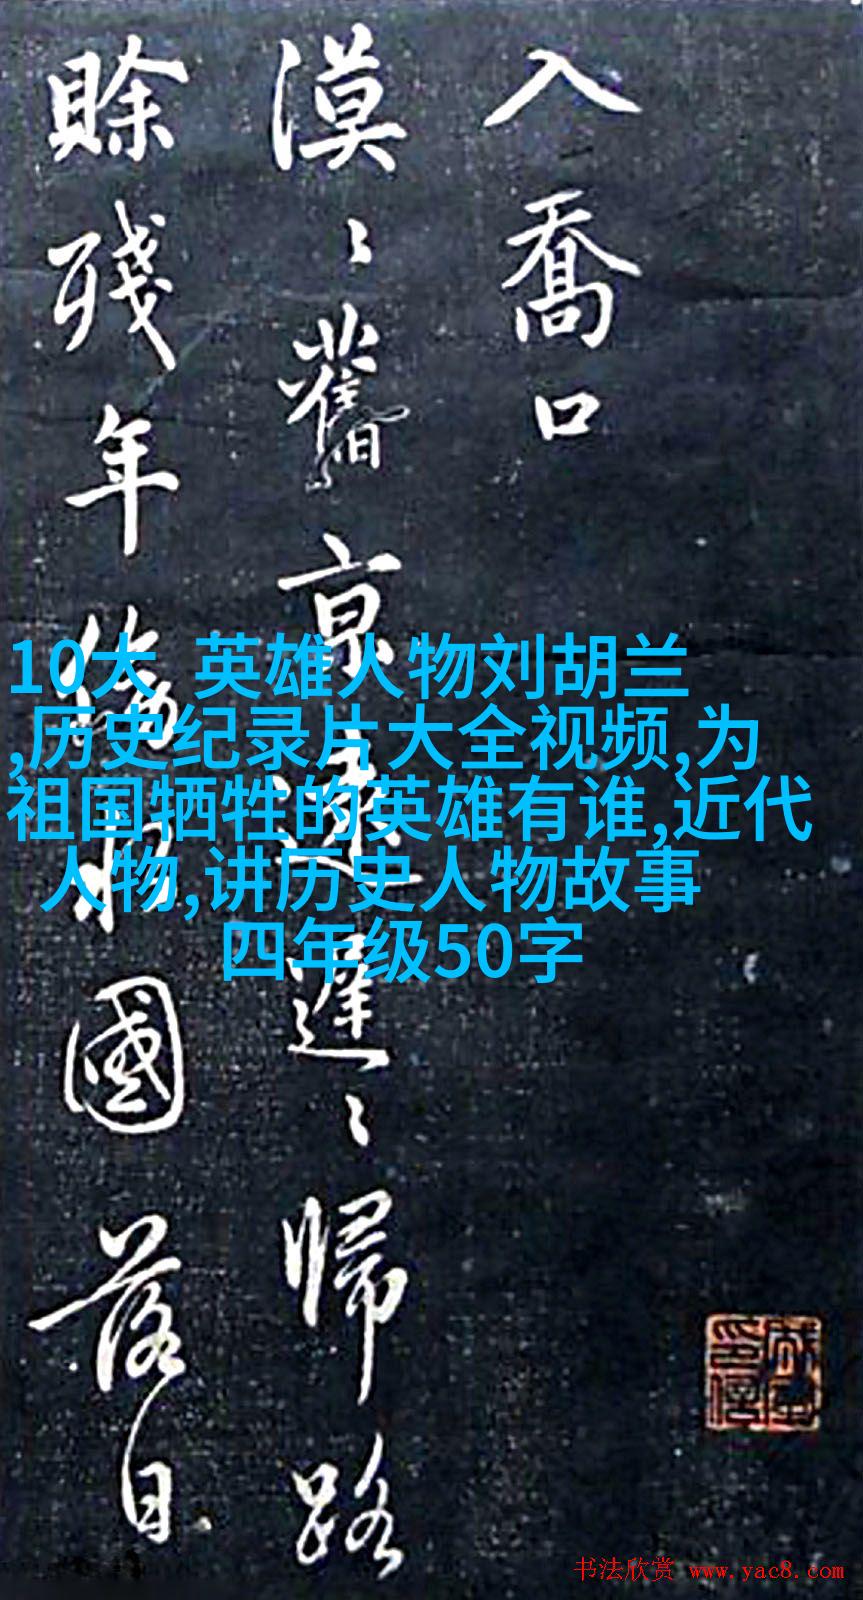 入喬口
漠〻舊京遠遲〻歸路
賒殘年傍水國落日
10大 英雄人物刘胡兰
,历史纪录片大全视频,为
祖国牺牲的英雄有谁,近代
人物,讲历史人物故事
四年级50字
书法欣赏 www.yac8.com